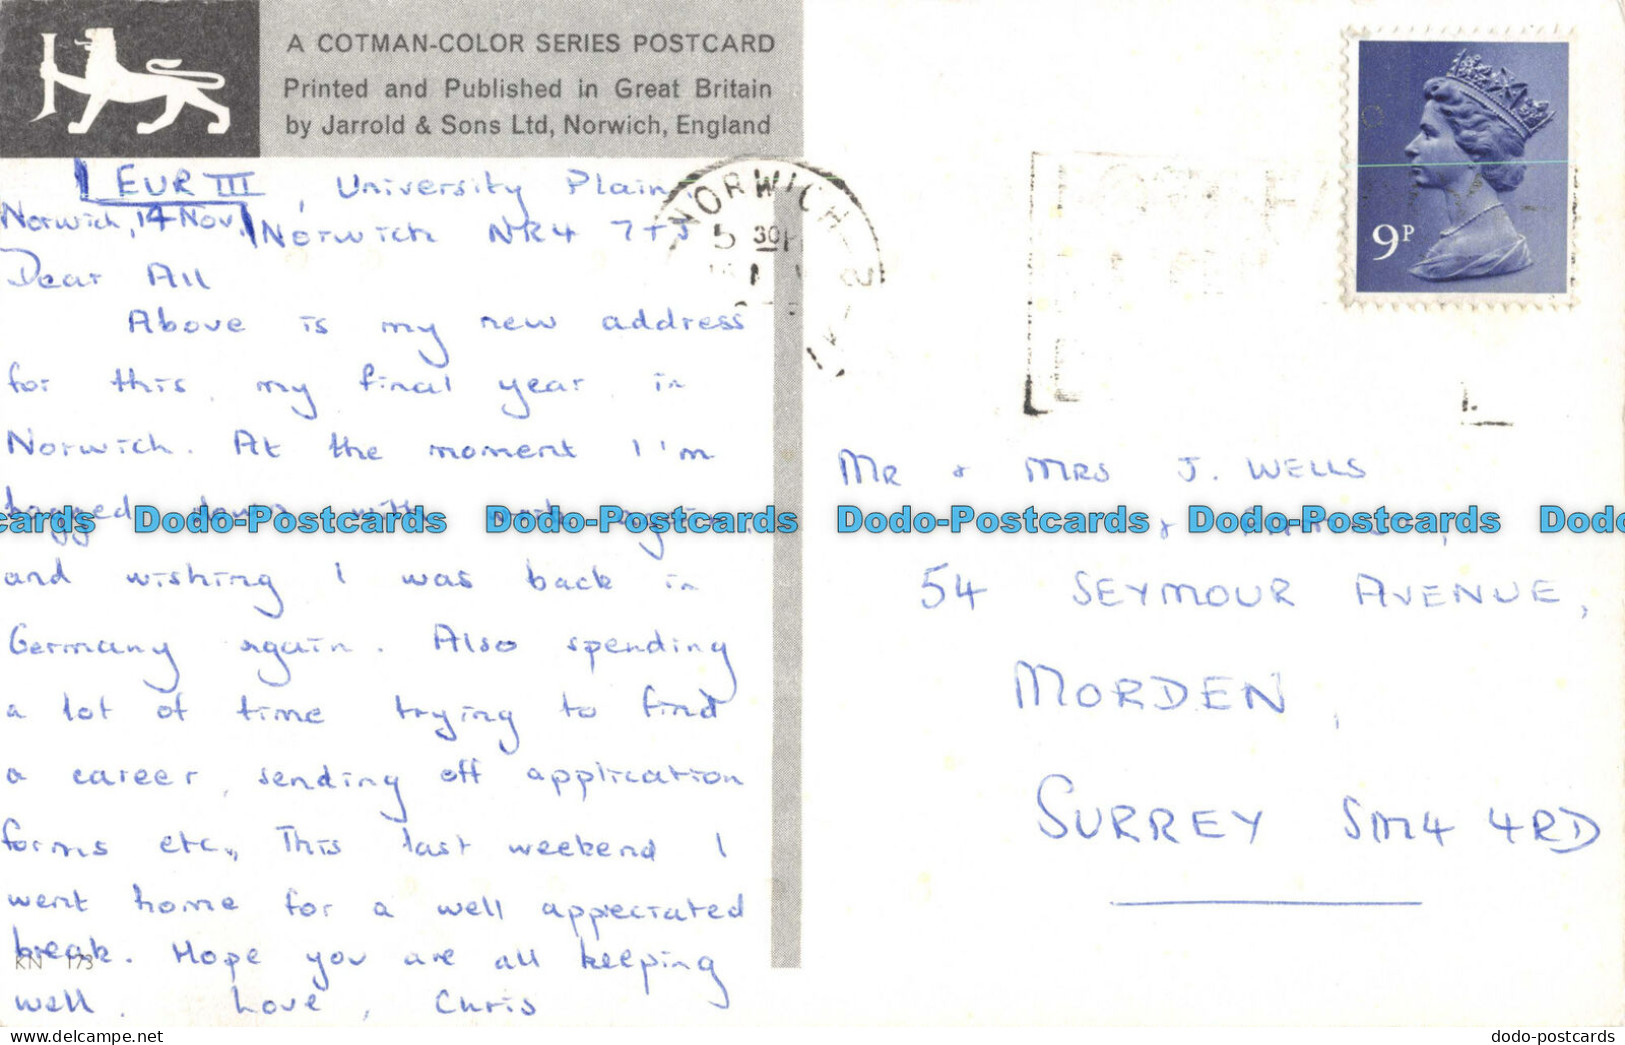 A COTMAN-COLOR SERIES POSTCARD
Printed and Published in Great Britain
by Jarrold & Sons Ltd, Norwich, England
EUR III, University Plain,
Norwich, 14 Nov.
Norwich NR4 7TJ
Dear All
Above is my new address
for this, my final year in
Norwich. At the moment I'm
bogged down with work again,
and wishing I was back in
Germany again. Also spending
a lot of time trying to find
a career, sending off application
forms etc., This last weekend I
went home for a well appreciated
break. Hope you are all keeping
well. Love, Chris
KN 173
NORWICH
5 30 PM
9P
MR & MRS J. WELLS
&
54 SEYMOUR AVENUE,
MORDEN,
SURREY SM4 4RD
cards Dodo-Postcards Dodo-Postcards Dodo-Postcards Dodo-Postcards Dodo
dodo-postcards